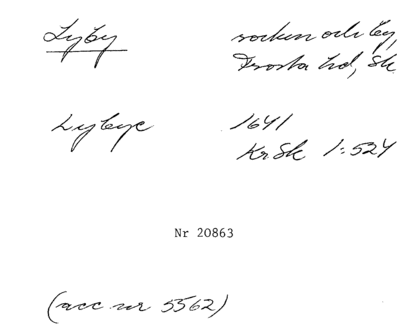 Lyby socken och by,
Frosta hd, Sk.
Lybye 1641
KrSk 1:524
Nr 20863
(acc nr 5562)